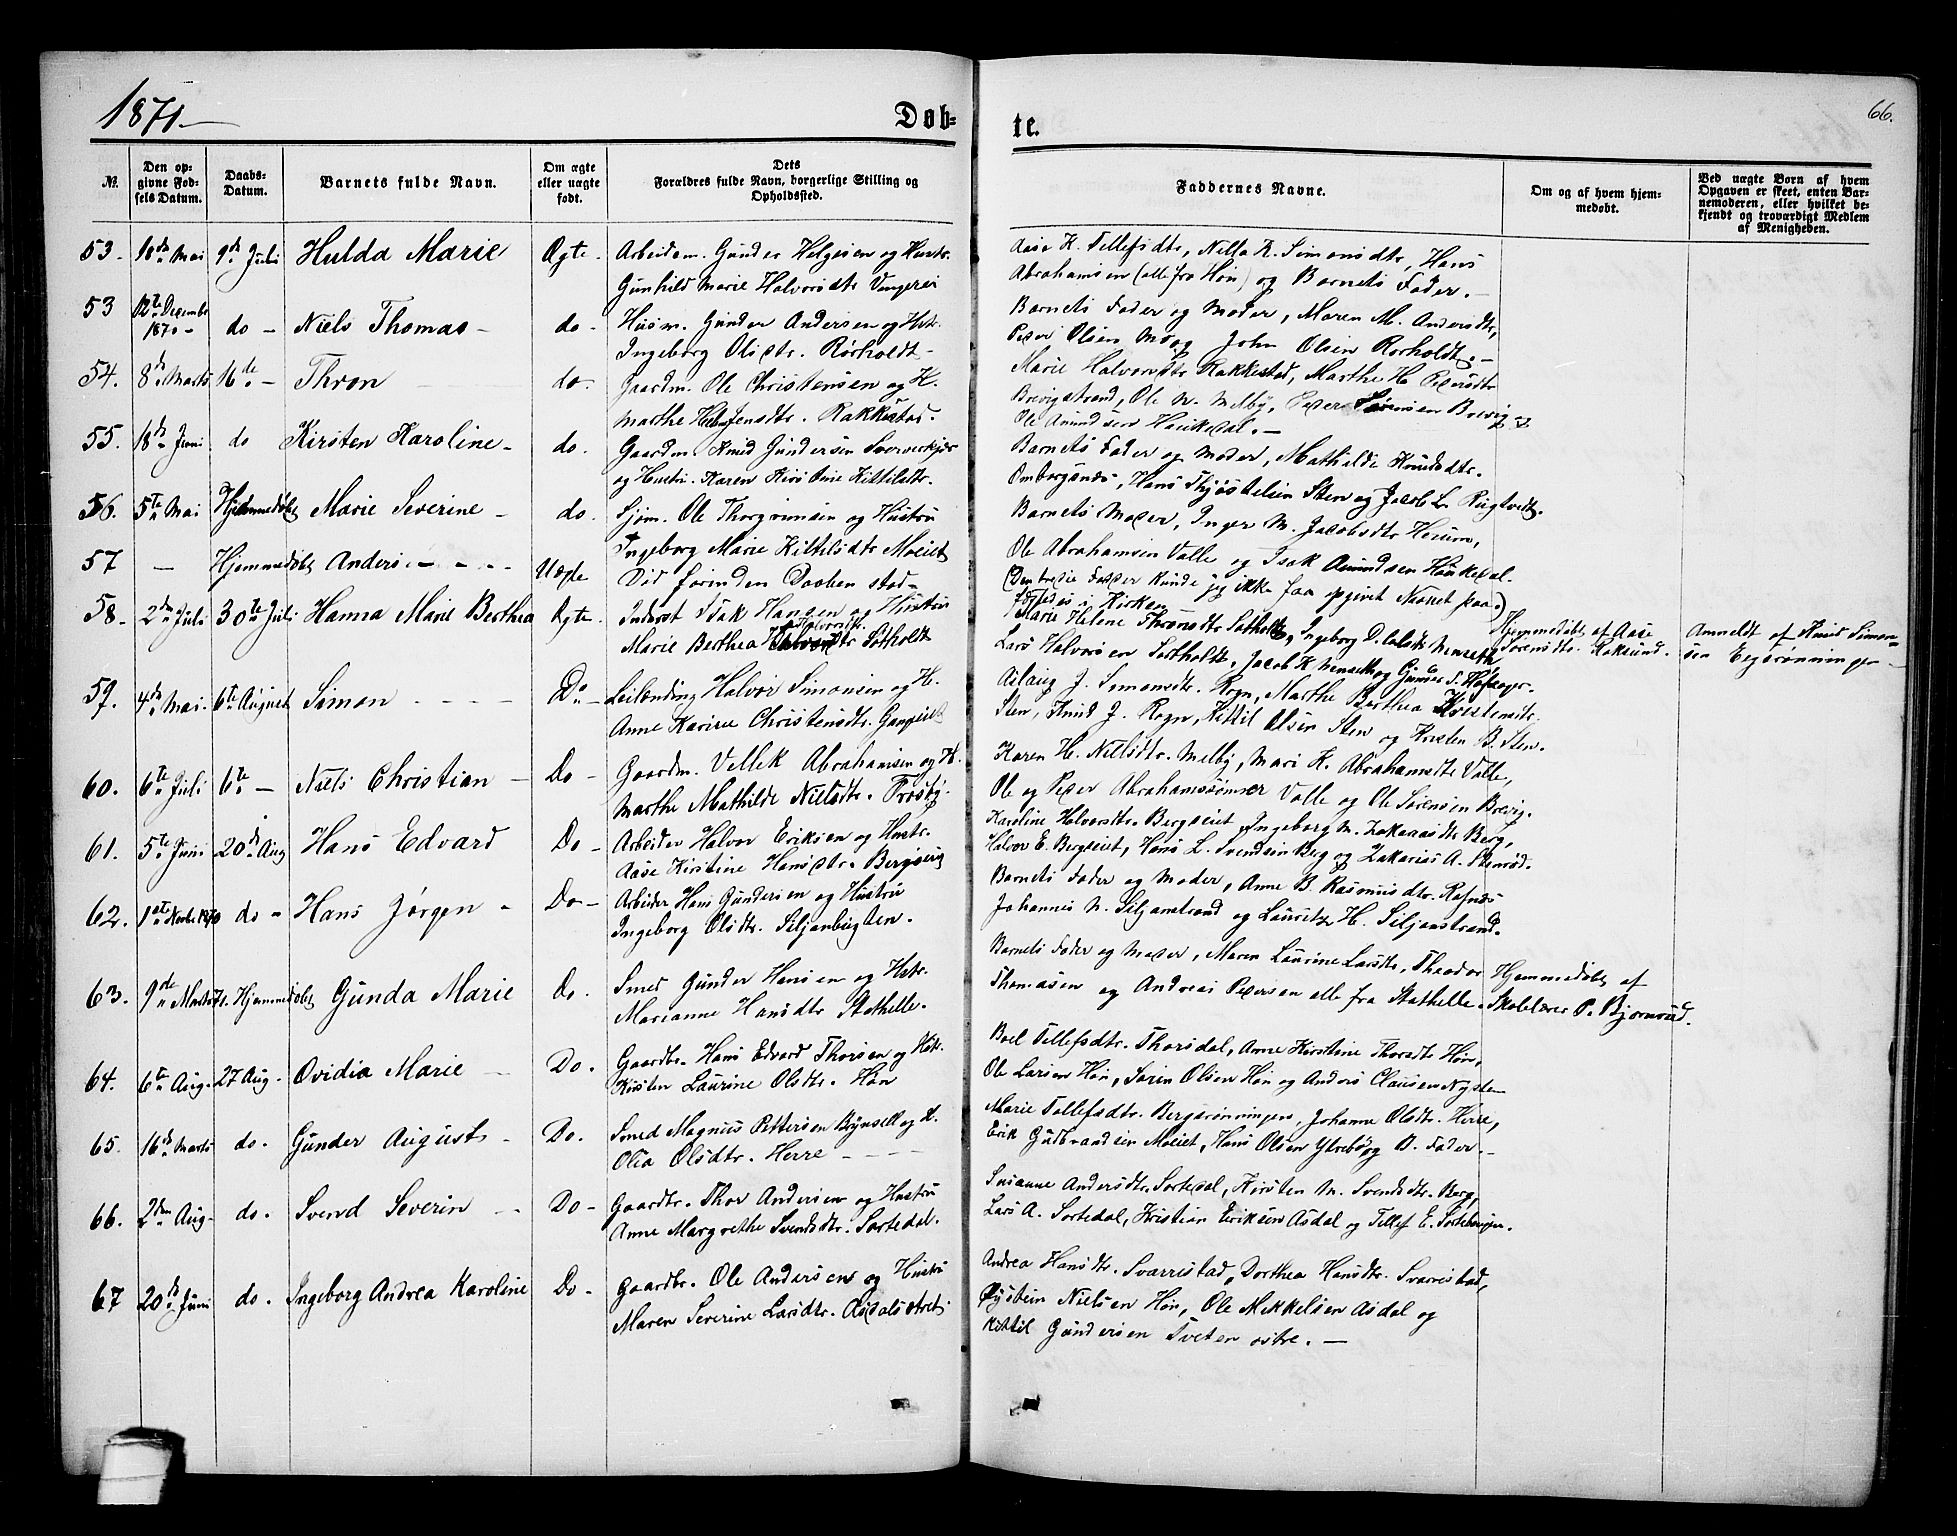 1871.
Døb-
te.
66.
№.
Den op-
givne Fød-
sels Datum.
Daabs-
Datum.
Barnets fulde Navn.
Om ægte
eller uægte
født.
Dets
Forældres fulde Navn, borgerlige Stilling og
Opholdssted.
Faddernes Navne.
Om og af hvem hjem-
medøbt.
Ved uægte Børn af hvem
Opgaven er skeet, enten Bar-
nemoderen, eller hvilket be-
kjendt og troværdigt Medlem
af Menigheden.
53. 18de Mai 9de Juli Hulda Marie Ægte. Arbeidsm. Gunder Helgesen og Hustr.
Gunhild Marie Halvorsdtr
Aase K. Tellefsdtr, Nella K. Simonsdtr, Hans
Abrahamsen (alle fra Høn) og Barnets Fader.
53 12te December
1870 - do - Niels Thomas - do - Husm. Gunder Andersen og Hstr.
Ingeborg Olsdtr. Rørholdt -
Barnets Fader og Moder, Maren M. Andersdtr,
Peder Olsen og John Olsen Rørholdt. -
54. 8de Marts 16de - Thron do - Gaardm. Ole Christensen og H.
Marthe Jensdtr. Rakkestad.
Marie Halvorsdtr Rakkestad, Marthe H. Pedersdtr
Brevigstrand, Ole N. Melby, Peder Sørensen Brevig og
Ole Amundsen Haukedal. -
55. 18de Juni do Kirsten Karoline - do. Gaardm. Knud Gundersen
og Hustru Karen Kirstine Kittilsdtr.
Barnets Fader og Moder, Mathilde Knudsdtr.
Omborgsnæs, Hans Thjøstelsen Sten og Jacob L. Rugtvedt.
56. 5te Mai Hjemmedøbt Marie Severine - do. Sjøm. Ole Thorgrimsen og Hustru
Ingeborg Marie Kittilsdtr Moeiet
Barnets Moder, Inger M. Jacobsdtr Herum,
Ole Abrahamsen Valle og Isak Amundsen Haukedal.
(Den tredie Fadder kunde jeg ikke faa opgivet Navnet paa.)
57 - Hjemmedøbt Anders - - - Uægte Død forinden Daaben stad-
fæstedes i Kirken
58. 2den Juli 30te Juli Hanna Marie Berthea Ægte. Inderst Isak Hansen og Hustru
Marie Berthea Halvorsdtr
Marie Helene Thronsdtr, Ingeborg D.
Lars Halvorsen, Jacob K.
Hjemmedøbt af Aase
Sørensdtr. Koksund.
Anmeldt af Knud Simon-
sen Eegerønningen -
59. 4de Mai. 6te August Simon - - - Do - Leilending Halvor Simonsen og H.
Anne Karine Christensdtr.
Aslaug J. Simonsdtr. Rogn, Marthe Berthea Kristensdtr.
Sten, Knud J. Rogn, Kittil Olsen Sten og Kristen B. Sten.
60. 6te Juli 6te - Niels Christian - Do - Gaardm. Vellek Abrahamsen og H.
Marthe Mathilde Nielsdtr. Trosby.
Karen H. Nielsdtr. Melby, Mari K. Abrahamsdtr Valle,
Ole og Peder Abrahamssønner Valle og Ole Sørensen Brevig.
61. 5te Juni 20de Aug Hans Edvard Do - Arbeider Halvor Eriksen og Hustr.
Aase Kirstine Hansdtr. Bergseiet
Karoline Halvorsdtr. Bergseiet, Ingeborg M. Zakariasdtr Berg,
Halvor E. Bergseiet, Hans L. Svendsen Berg og Zakarias A. Stenrød.
62. 1ste Novbr 1870 do - Hans Jørgen - Do - Arbeider Hans Gundersen og Hustru
Ingeborg Olsdtr. Siljanbugten.
Barnets Fader og Moder, Anne B. Rasmusdtr. Rafnæs
Johannes N. Siljanstrand og Lauritz H. Siljanstrand.
63. 9de Marts Hjemmedøbt Gunda Marie Do. Smed Gunder Hansen og Hstr.
Marianne Hansdtr Stathelle.
Barnets Fader og Moder, Maren Laurine Larsdtr, Theodor
Thomasen og Andreas Pedersen alle fra Stathelle.
Hjemmedøbt af
Skolelærer P. Bjørnrud.
64. 6te Aug. 27 Aug. Ovidia Marie - Do. Gaardbr. Hans Edvard Thorsen og Hstr.
Kirsten Laurine Olsdtr. Høn
Boel Tellefsdtr. Thorsdal, Anne Kirstine Thorsdtr Høn,
Ole Larsen Høn, Søren Olsen Høn og Anders Clausen Nysten
65. 16de Marts do. Gunder August - Do. Smed Magnus Pettersen Bynsell og H.
Olia Olsdtr. Herre - - - -
Marie Tollefsdtr. Bergsrønningen, Johanne Olsdtr. Herre,
Erik Gudbrandsen Moeiet, Hans Olsen Ytrebø og B. Fader. -
66. 2den Aug. do. Svend Severin - Do - Gaardbr. Thor Andersen og Hustru
Anne Margrethe Svendsdtr. Sortedal.
Susanne Andersdtr. Sortedal, Kirsten M. Svendsdtr. Berg,
Lars A. Sortedal, Kristian Eriksen Asdal og Tellef E.
67 20de Juni do. Ingeborg Andrea Karoline Do - Gaardbr. Ole Andersen og Hustru
Maren Severine Larsdtr. Asdalsstret
Andrea Hansdtr. Svarristad, Dorthea Hansdtr. Svarristad,
Øystein Nielsen Høn, Ole Mikkelsen Asdal og
Kittil Gundersen Tveten østre. -